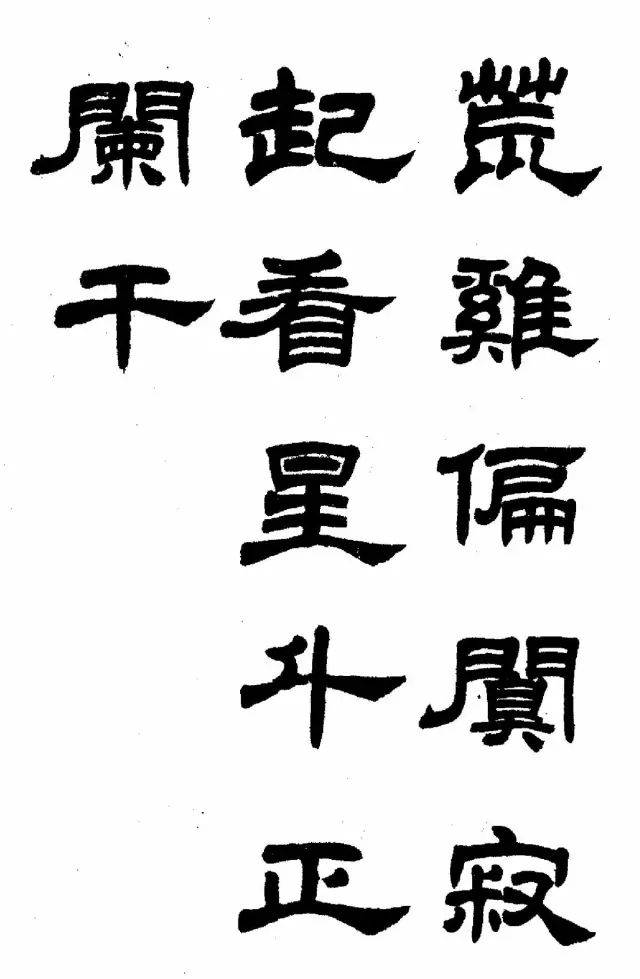 荒雞偏闐寂
起看星斗正
闌干